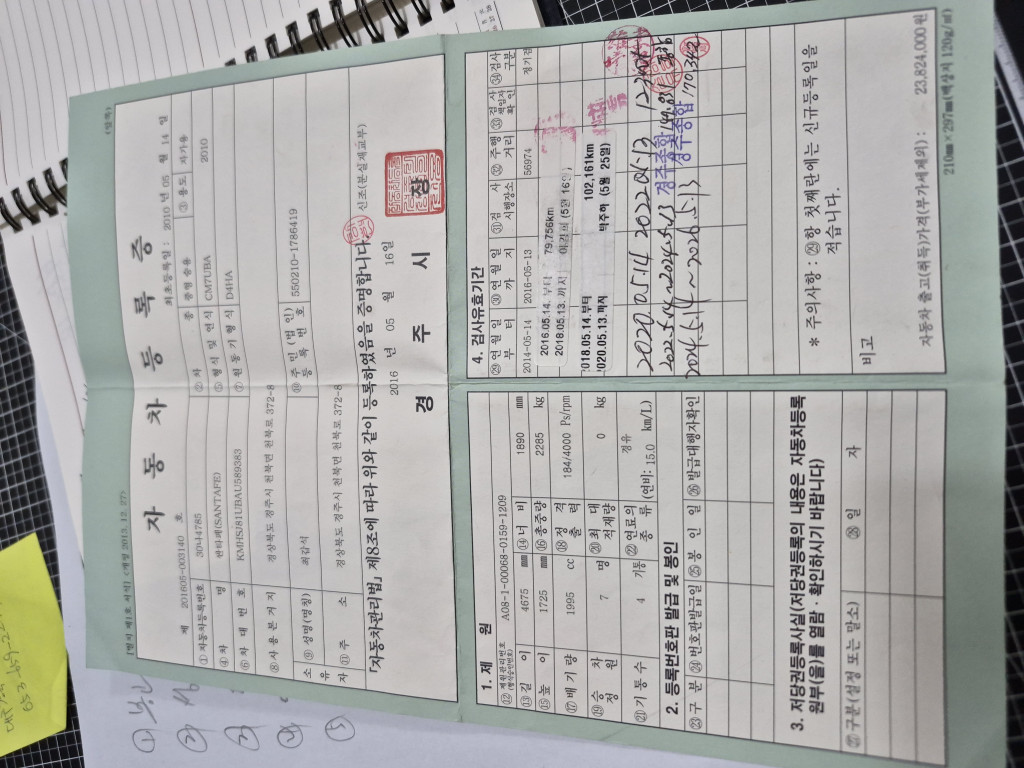 [별지 제1호 서식] <개정 2013. 12. 27> (앞쪽)
자 동 차 등 록 증
제 201605-003140 호 최초등록일 : 2010 년 05 월 14 일
① 자동차등록번호 30너4785 ② 차 종 중형 승용 ③ 용도 자가용
④ 차 명 싼타페(SANTAFE) ⑤ 형식 및 연식 CM7UBA 2010
⑥ 차 대 번 호 KMHSJ81UBAU589383 ⑦ 원동기 형식 D4HA
⑧ 사 용 본 거 지 경상북도 경주시 천북면 천북로 372-8
소유자 ⑨ 성명(명칭) 최갑서 ⑩ 주민(법인)등록번호 550210-1786419
⑪ 주 소 경상북도 경주시 천북면 천북로 372-8
「자동차관리법」 제8조에 따라 위와 같이 등록하였음을 증명합니다. 신조(분실재교부)
2016 년 05 월 16일
경 주 시 장
1. 제 원
⑫ 제원관리번호(형식승인번호) A08-1-00068-0159-1209
⑬ 길 이 4675 mm ⑭ 너 비 1890 mm
⑮ 높 이 1725 mm ⑯ 총중량 2285 kg
⑰ 배 기 량 1995 cc ⑱ 정 격 출 력 184/4000 Ps/rpm
⑲ 승 차 정 원 7 명 ⑳ 최 대 적재량 0 kg
㉑ 기 통 수 4 기통 ㉒ 연료의 종 류 경유 (연비: 15.0 km/L)
2. 등록번호판 발급 및 봉인
㉓ 구 분 ㉔ 번호판발급일 ㉕ 봉 인 일 ㉖ 발급대행자확인
3. 저당권등록사실(저당권등록의 내용은 자동차등록
원부(을)를 열람 · 확인하시기 바랍니다)
㉗ 구분(설정 또는 말소) ㉘ 일 자
4. 검사유효기간
㉙ 연 월 일 부 터 ㉚ 연 월 일 까 지 ㉛ 검 사 시행장소 ㉜ 주행 거리 ㉝ 검 사 책임자 확인 ㉞ 검사 구분
2014-05-14 2016-05-13 56974 정기검
2016.05.14. 부터 79,756km
2018.05.13. 까지 (5월 16일)
2018.05.14.부터 102,161km
2020.05.13.까지 박주하 (5월 25일)
2020.05.14 2022.05.13
2022.5.14~2024.5.13 경주종합
경주종합
* 주의사항 : ㉙항 첫째란에는 신규등록일을
적습니다.
비고
자동차 출고(취득)가격(부가세제외) : 23,824,000 원
210㎜×297㎜(백상지 120g/㎡)
①
②
③
④
⑤